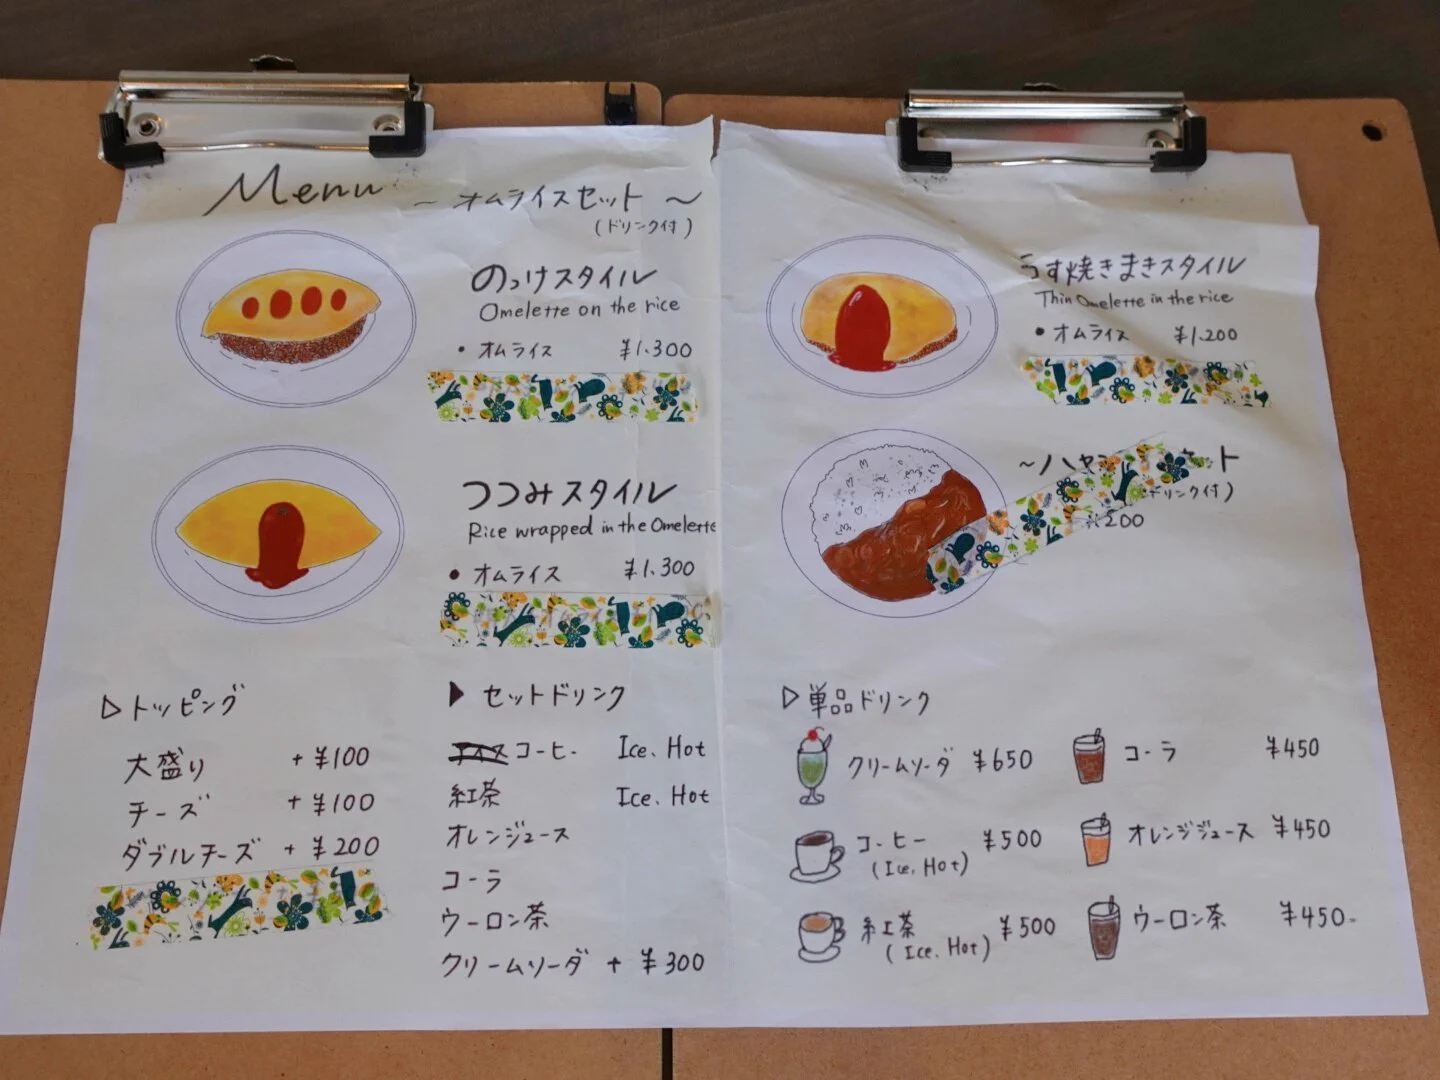 Menu
～ オムライスセット ～
(ドリンク付)
のっけスタイル
Omelette on the rice
・オムライス ¥1.300
つつみスタイル
Rice wrapped in the Omelette
・オムライス ¥1.300
▷トッピング
大盛り +¥100
チーズ +¥100
ダブルチーズ +¥200
▶ セットドリンク
コーヒー Ice. Hot
紅茶 Ice. Hot
オレンジュース
コーラ
ウーロン茶
クリームソーダ + ¥300
うす焼きまきスタイル
Thin Omelette in the rice
・オムライス ¥1.200
～ハヤ ット
ドリンク付)
200
▷単品ドリンク
クリームソーダ ¥650
コーヒー ¥500
(Ice, Hot)
紅茶 ¥500
(Ice. Hot)
コーラ ¥450
オレンジジュース ¥450
ウーロン茶 ¥450-